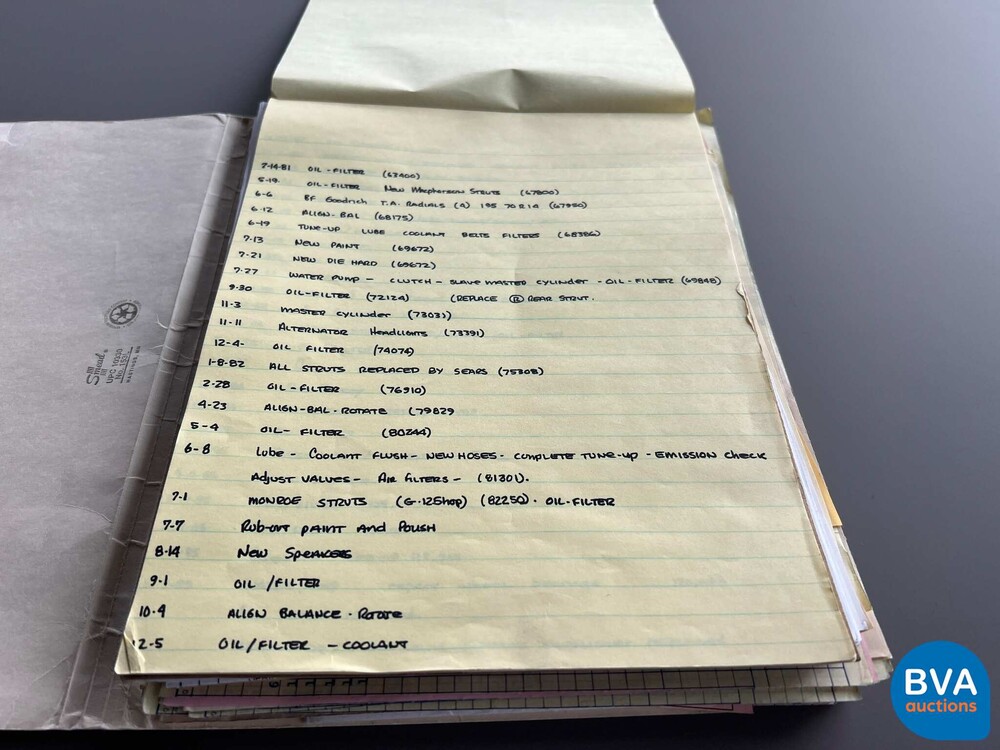 7-14-81 OIL-FILTER (63400)
5-19 OIL-FILTER New Macpherson Struts (67800)
6-6 BF Goodrich T.A. Radials (4) 195 70 R14 (67950)
6-12 ALIGN-BAL (68175)
6-19 TUNE-UP LUBE COOLANT BELTS FILTERS (68386)
7-13 NEW PAINT (69672)
7-21 NEW DIE HARD (69672)
7-27 WATER PUMP - CLUTCH - SLAVE MASTER CYLINDER - OIL-FILTER (69848)
9-30 OIL-FILTER (72124) (REPLACE Ⓡ REAR STRUT.
11-3 MASTER CYLINDER (73031)
11-11 ALTERNATOR HeadLIGHTS (73391)
12-4- OIL FILTER (74074)
1-8-82 ALL STRUTS REPLACED BY SEARS (75308)
2-28 OIL-FILTER (76910)
4-23 ALIGN-BAL-ROTATE (79829
5-4 OIL- FILTER (80244)
6-8 Lube - COOLANT FLUSH - NEW HOSES - COMPLETE TUNE-UP - EMISSION CHECK
ADJUST VALVES - AIR FILTERS - (81301).
7-1 MONROE STRUTS (G-12Shop) (82250) . OIL-FILTER
7-7 RUB-OUT PAINT AND POLISH
8-14 New Speakers
9-1 OIL /FILTER
10-9 ALIGN BALANCE . ROTATE
12-5 OIL/FILTER - COOLANT
Smead®
UPC 10330
No. 153L
HASTINGS, MN
BVA
auctions